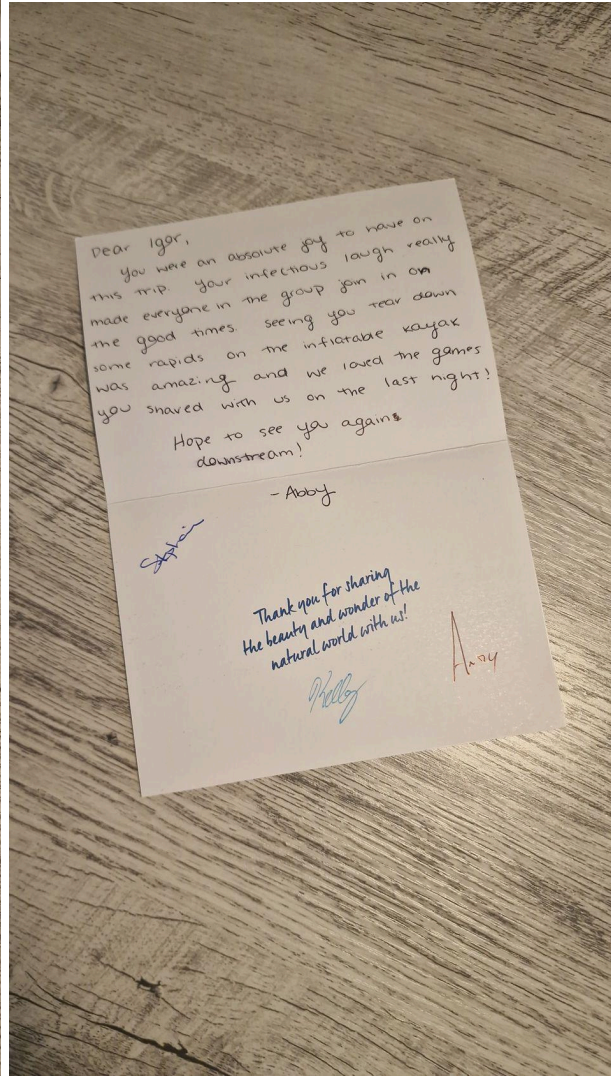 Dear Igor,
You were an absolute joy to have on
this trip. Your infectious laugh really
made everyone in the group join in on
the good times. Seeing you tear down
some rapids on the inflatable kayak
was amazing and we loved the games
you shared with us on the last night!
Hope to see ya again
downstream!
- Abby
Thank you for sharing
the beauty and wonder of the
natural world with us!
Kelly